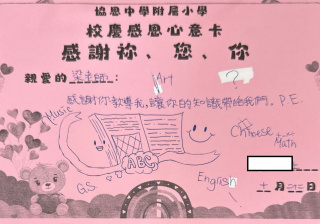 協恩中學附屬小學
校慶感恩心意卡
感謝祢、您、你
親愛的梁老師：
Art
?
感謝你教導我，讓你的知識帶給我們。P.E.
Music
Chinese
Math
ABC
GS
English
十一月
日